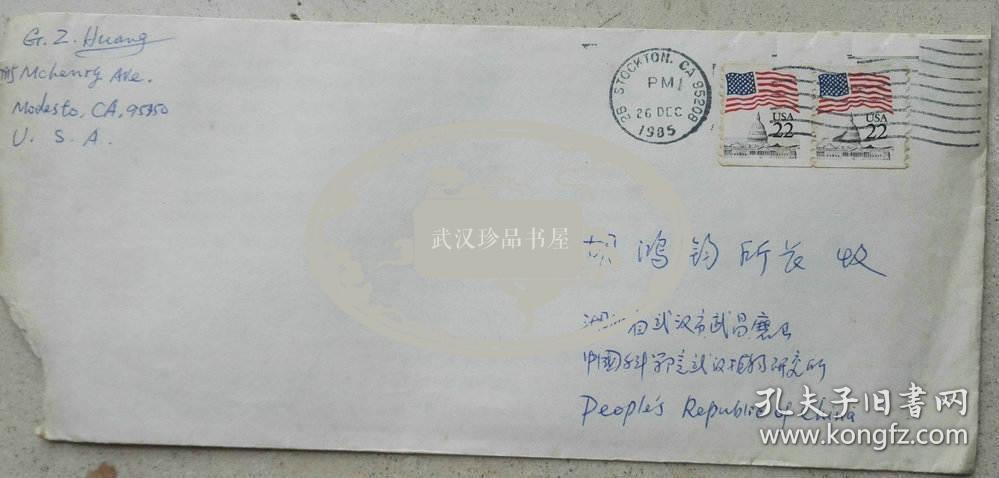 G. Z. Huang
Mchenry Ave.
Modesto, CA, 95350
U. S. A.
STOCKTON, CA 95208
PM
26 DEC
1985
2B
USA
22
USA
22
武汉珍品书屋
胡鸿钧所长收
湖北省武汉市武昌磨山
中國科学院武汉植物研究所
People's Republic of China
孔夫子旧书网
www.kongfz.com